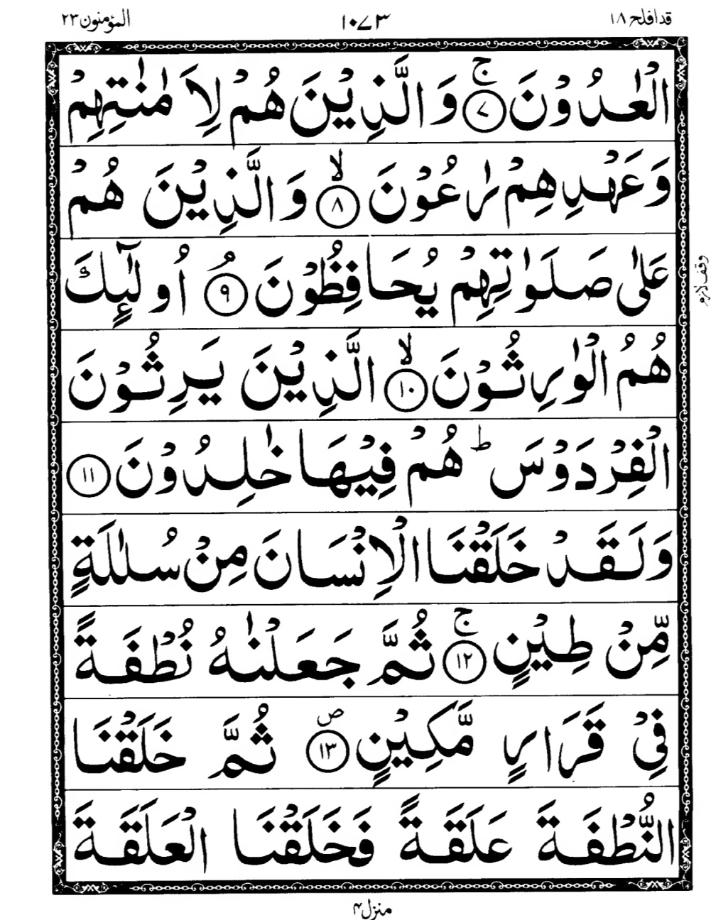 قدافلح ١٨ ١٠٧٣ المؤمنون ٢٣
الْعٰدُوْنَ ۚ ﴿٧﴾ وَالَّذِيْنَ هُمْ لِاَمٰنٰتِهِمْ
وَعَهْدِهِمْ رٰعُوْنَ ۙ ﴿٨﴾ وَالَّذِيْنَ هُمْ
عَلٰى صَلَوٰتِهِمْ يُحَافِظُوْنَ ۘ ﴿٩﴾ اُولٰٓئِكَ
وقف لازم
هُمُ الْوٰرِثُوْنَ ۙ ﴿١٠﴾ الَّذِيْنَ يَرِثُوْنَ
الْفِرْدَوْسَ ؕ هُمْ فِيْهَا خٰلِدُوْنَ ﴿١١﴾
وَلَقَدْ خَلَقْنَا الْاِنْسَانَ مِنْ سُلٰلَةٍ
مِّنْ طِيْنٍ ۚ ﴿١٢﴾ ثُمَّ جَعَلْنٰهُ نُطْفَةً
فِيْ قَرَارٍ مَّكِيْنٍ ۪ ﴿١٣﴾ ثُمَّ خَلَقْنَا
النُّطْفَةَ عَلَقَةً فَخَلَقْنَا الْعَلَقَةَ
منزل ۴